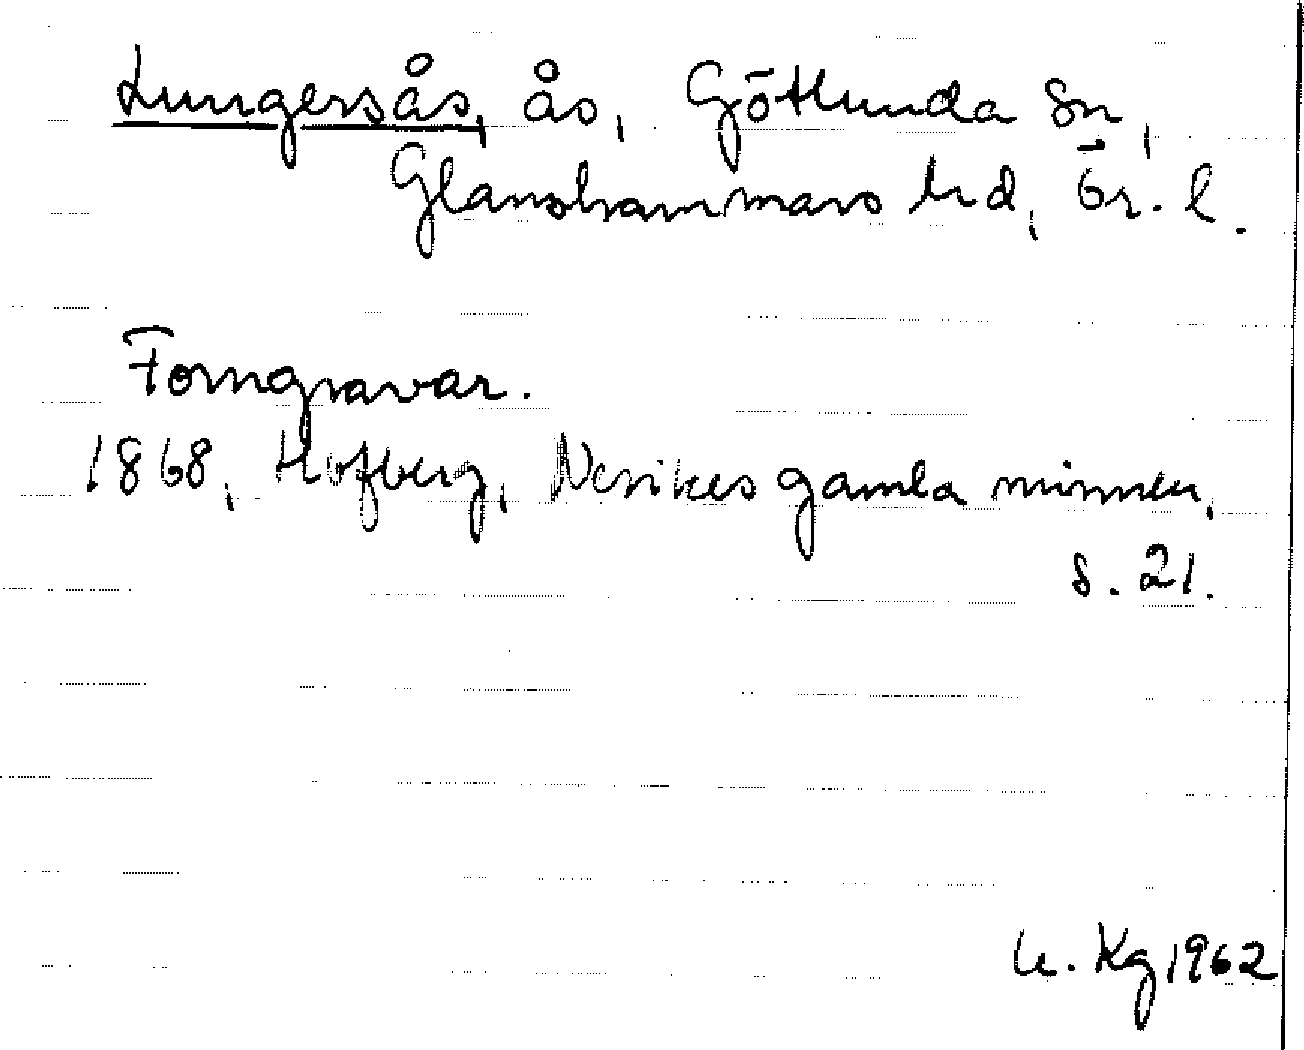 Lungersås, ås, Götlunda sn,
Glanshammars hd, Ör. l.
Forngravar.
1868, Hofberg, Nerikes gamla minnen,
s. 21.
Kg 1962